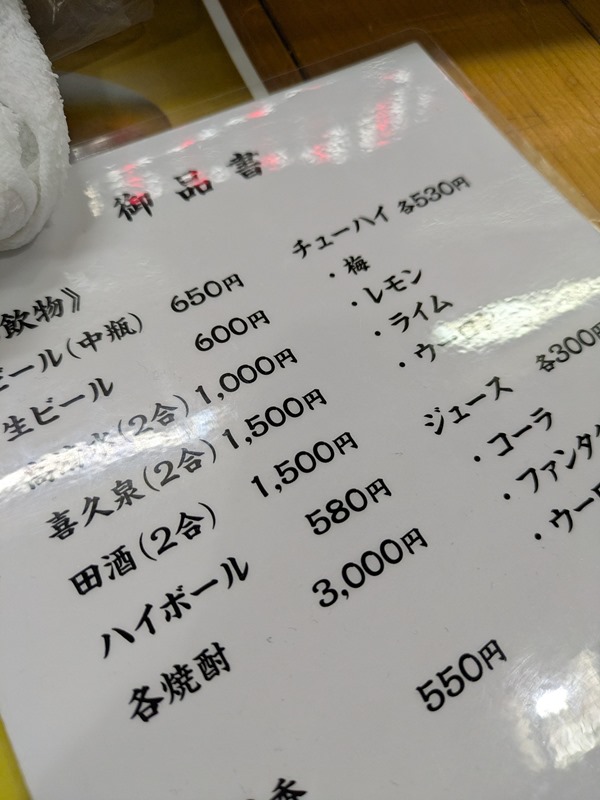 御品書
飲物》
ビール(中瓶) 650円
生ビール 600円
(2合) 1,000円
喜久泉(2合) 1,500円
田酒(2合) 1,500円
ハイボール 580円
各焼酎 3,000円
550円
チューハイ 各530円
・梅
・レモン
・ライム
・ウ
ジュース 各300円
・コーラ
・ファンタ
・ウー